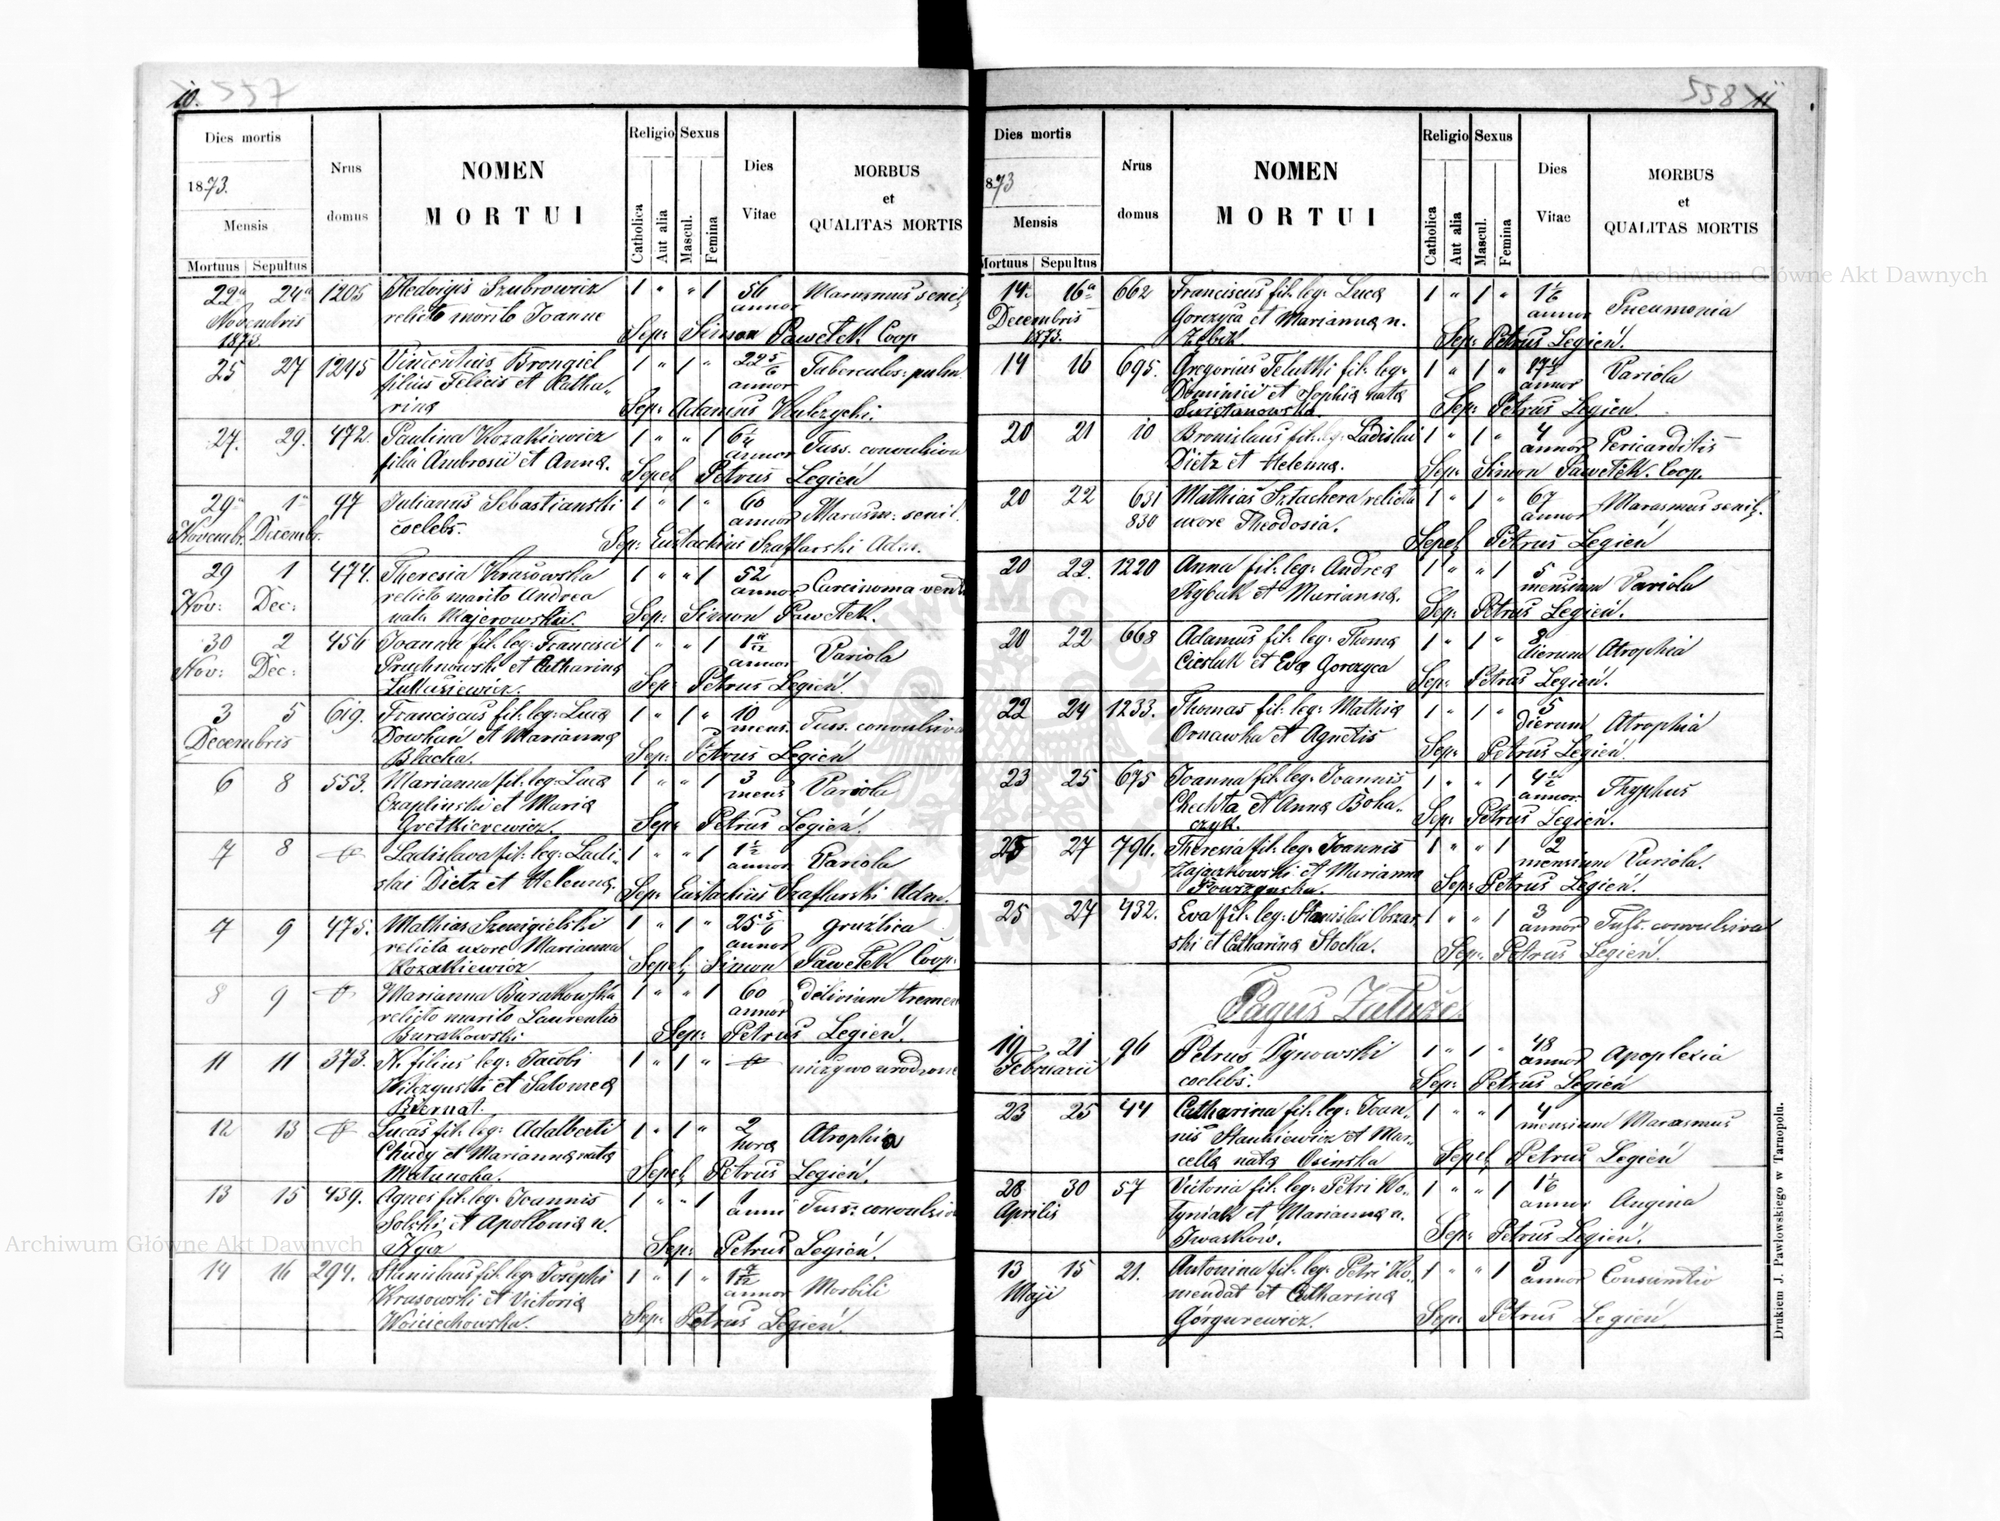 10. 557
Dies mortis
1873.
Mensis
Mortuus Sepultus
Nrus domus
NOMEN MORTUI
Religio
Catholica
Aut alia
Sexus
Mascul.
Femina
Dies Vitae
MORBUS et QUALITAS MORTIS
22a 24a 1205 Hedvigis Szubrowicz 1 " " 1 56 Marasmus senil.
Novembris relicto marito Joanne annor
1873. Sep: Simon Pawełek Coop.
25 27 1245 Vincentius Brongiel 1 " 1 " 22 5/6 Tuberculos: pulm.
filius Felicis et Katha- annor
rina Sep: Adamus Kulczycki.
27. 29. 472. Paulina Kozakiewicz 1 " " 1 6 1/4 Tuss. convulsiva
filia Ambrosii et Anna. annor
Sepel Petrus Legień
29a 1a 97 Julianus Sebastianski 1 " 1 " 60 Marasm: senil.
Novembr. Decembr. coelebs. annor
Sep: Eustachius Szaflarski Adm.
29 1 474. Theresia Krasowska 1 " " 1 52 Carcinoma
Nov: Dec: relicto marito Andrea annor
nata Majerowska. Sep: Simon Pawełek.
30 2 456 Joanna fil: leg: Francisci 1 " " 1 1 annor Variola
Nov: Dec: Pruchnowski et Catharina
Łukasiewicz. Sep: Petrus Legień.
3 5 619. Franciscus fil: leg: Luca 1 " 1 " 10 Tuss. convulsiva
Decembris Dowhań et Marianna mens.
Blacha. Sep: Petrus Legień
6 8 553. Marianna fil: leg: Luca 1 " " 1 3 Variola
Czaplinski et Maria mens
Sep: Petrus Legień.
7 8 Ladislava fil: leg: Ladi- 1 " " 1 1 1/2 Variola
slai Dietz et Helenna. annor
Sep: Eustachius Szaflarski Adm.
7 9 475. Mathias Szmigielski 1 " 1 " 25 5/6 Gruzlica
relicta uxore Marianna annor
Kozakiewicz Sepel: Simon Pawełek Coop.
8 9 Marianna Burakowska 1 " " 1 60 delirium tremen
relicto marito Laurentio annor
Burakowski Sep: Petrus Legień.
11 11 373. N. filius leg: Jacobi 1 " 1 " nieżywo urodzone
Wilczynski et Salomea
Biernat.
12 13 Lucas fil: leg: Adalberti 1 " 1 " 2 Atrophia
Chudy et Marianna nata hora
Matunoha. Sepel: Petrus Legień.
13 15 439. Agnes fil: leg: Joannis 1 " " 1 1 Tuss: convulsiva
Solski et Apollonia n. anni
Sep: Petrus Legień.
14 16 294. Stanislaus fil: leg: Josephi 1 " 1 " 1 annor Morbili
Krasowski et Victoria
Wojciechowska. Sep: Petrus Legień.
558 11
Dies mortis
1873
Mensis
Mortuus Sepultus
Nrus domus
NOMEN MORTUI
Religio
Catholica
Aut alia
Sexus
Mascul.
Femina
Dies Vitae
MORBUS et QUALITAS MORTIS
14. 16a 662 Franciscus fil: leg: Luca 1 " 1 " 1 1/6 Pneumonia
Decembris Gorczyca et Marianna n. annor
1873. Sep: Petrus Legień.
14 16 695. Gregorius Feluthi fil: leg: 1 " 1 " 17 1/2 Variola
Dominici et Sophia nata annor
Swistanowska. Sep: Petrus Legień.
20 21 10 Bronislaus fil: leg: Ladislai 1 " 1 " 4 Pericarditis
Dietz et Helenna. annor
Sep: Simon Pawełek. Coop.
20 22 631 Mathias Sztachera relicta 1 " 1 " 67 Marasmus senil.
830 uxore Theodosia. annor
Sepel Petrus Legień
20 22. 1220 Anna fil: leg: Andrea 1 " " 1 5 Variola
Rybak et Marianna. mensium
Sep: Petrus Legień.
20 22 668 Adamus fil: leg: Thoma 1 " 1 " dierum Atrophia
Cieslak et Eva Gorczyca
Sep: Petrus Legień.
22 24 1233. Thomas fil: leg: Mathia 1 " 1 " 5 Atrophia
Ornawka et Agnetis dierum
Sep: Petrus Legień.
23 25 675 Joanna fil: leg: Joannis 1 " " 1 4 1/2 Thyphus
Chechta et Anna Boha- annor.
czyk. Sep: Petrus Legień.
25 27 796. Theresia fil: leg: Joannis 1 " " 1 2 Variola.
Zajaczkowski et Marianna mensium
Sep: Petrus Legień.
25 27 432. Eva fil: leg: Stanislai Obzar- 1 " " 1 3 Tuss. convulsiva
ski et Catharina Stocka. annor
Sep: Petrus Legień.
Pagus Załuże.
19 21 96 Petrus Dynowski 1 " 1 " 48 Apoplexia
Februarii coelebs. annor
Sep: Petrus Legień
23 25 44 Catharina fil: leg: Joan- 1 " " 1 4 Marasmus
nis Stankiewicz et Mar- mensium
cella nata Osinska Sepel: Petrus Legień
28 30 57 Victoria fil: leg: Petri Wo- 1 " " 1 1 1/6 Angina
Aprilis łyniak et Marianna n. annor
Iwaskow. Sep: Petrus Legień.
13 15 21. Antonina fil: leg: Petri Ko- 1 " " 1 3 Consumtio
Maji mendat et Catharina annor
Górgurewicz. Sep: Petrus Legień
Drukiem J. Pawłowskiego w Tarnopolu.
Archiwum Główne Akt Dawnych
Archiwum Główne Akt Dawnych